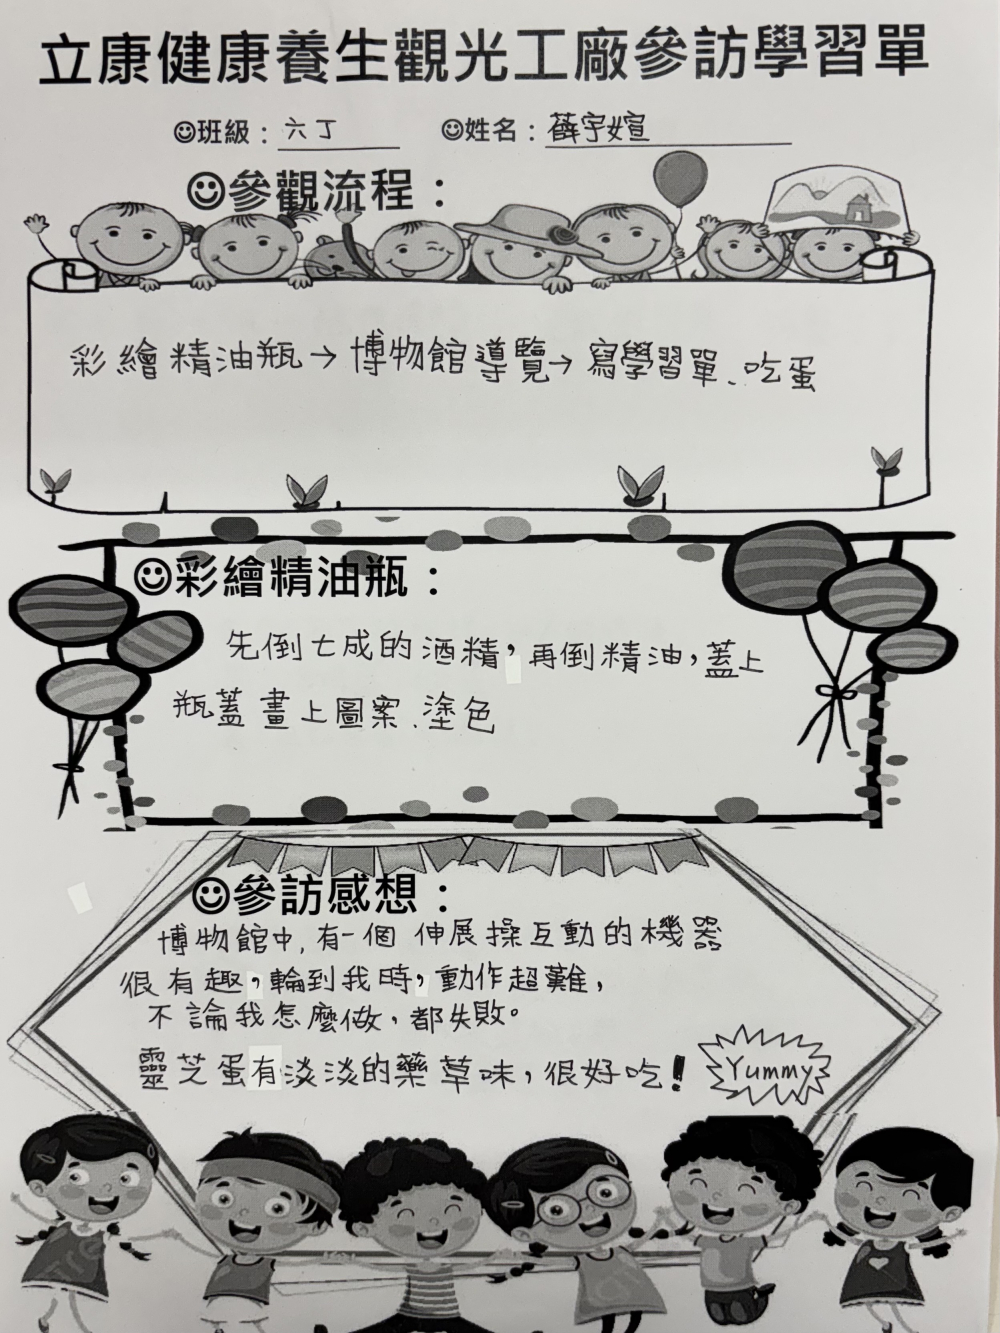 立康健康養生觀光工廠參訪學習單
班級：六丁 姓名：薛宇媗
參觀流程：
彩繪精油瓶→博物館導覽→寫學習單、吃蛋
彩繪精油瓶：
先倒七成的酒精，再倒精油，蓋上
瓶蓋畫上圖案、塗色
參訪感想：
博物館中，有一個伸展操互動的機器
很有趣，輪到我時，動作超難，
不論我怎麼做，都失敗。
靈芝蛋有淡淡的藥草味，很好吃！ Yummy